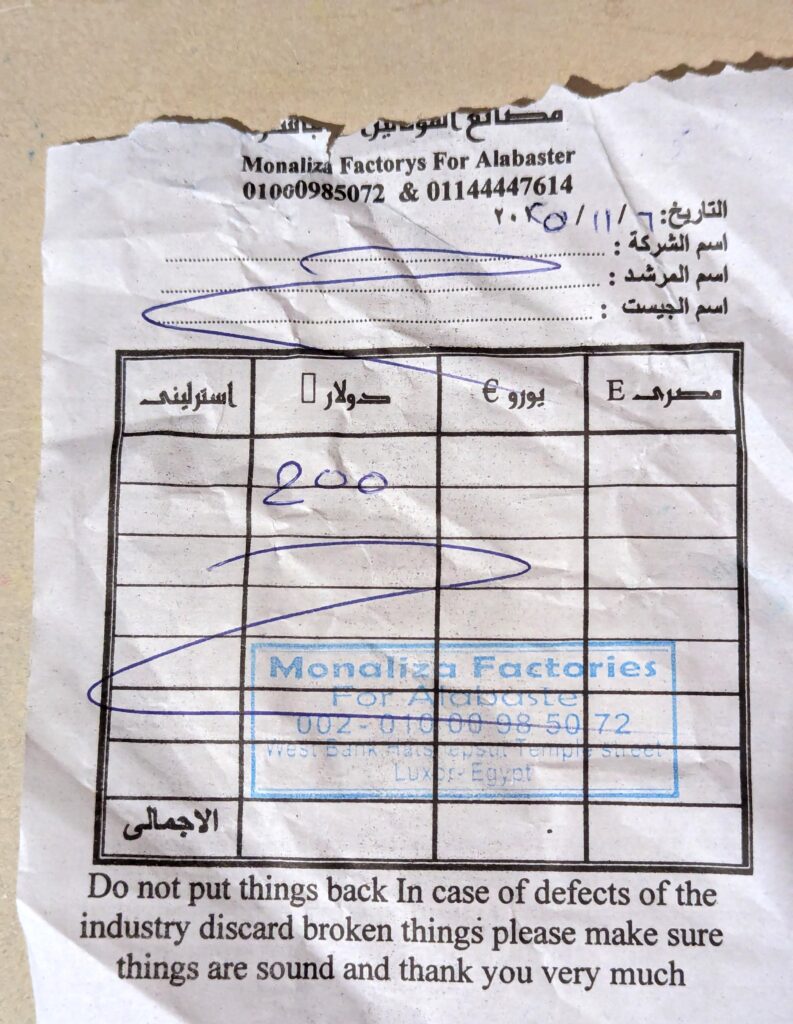 مصانع
Monaliza Factorys For Alabaster
01000985072 & 01144447614
التاريخ: ٦ / ١١ / ٢٠٢٥
اسم الشركة :
اسم المرشد :
اسم الجيست :
مصرى E يورو € دولار استرلينى
200
Monaliza Factories
For Alabaste
002 - 010 00 98 50 72
West Bank Hatshepsut Temple street
Luxor- Egypt
الاجمالى
Do not put things back In case of defects of the
industry discard broken things please make sure
things are sound and thank you very much